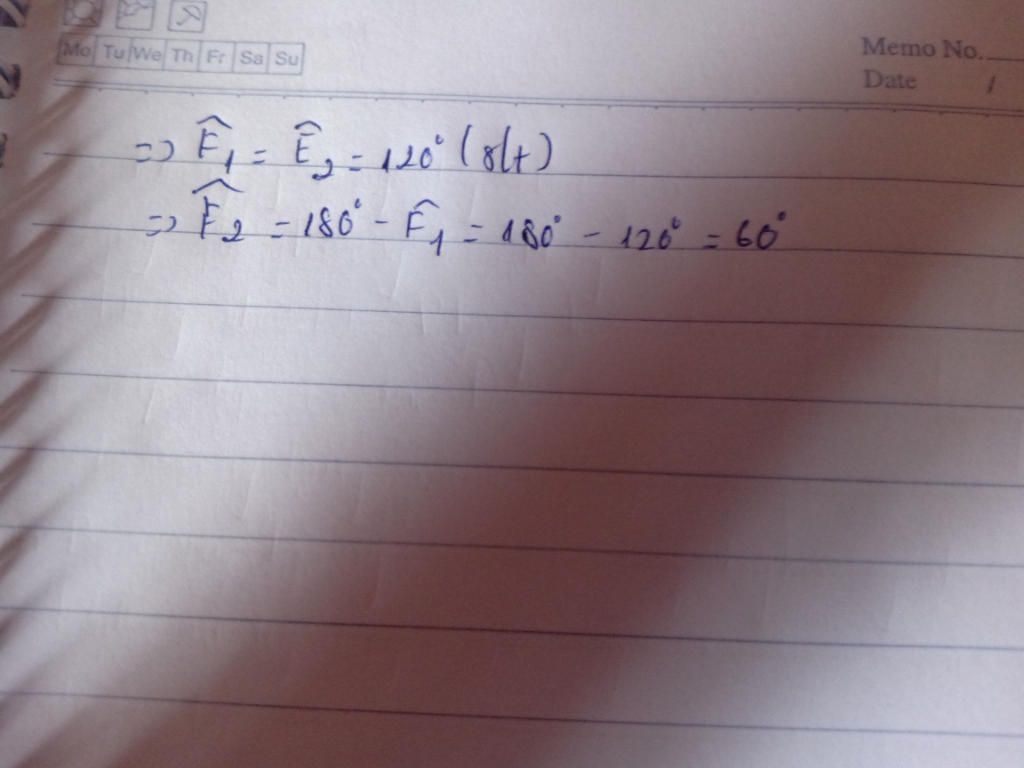 Mo Tu We Th Fr Sa Su
Memo No.
Date /
=> F̂₁ = Ê₂ = 120° (slt)
=> F̂₂ = 180° - F̂₁ = 180° - 120° = 60°